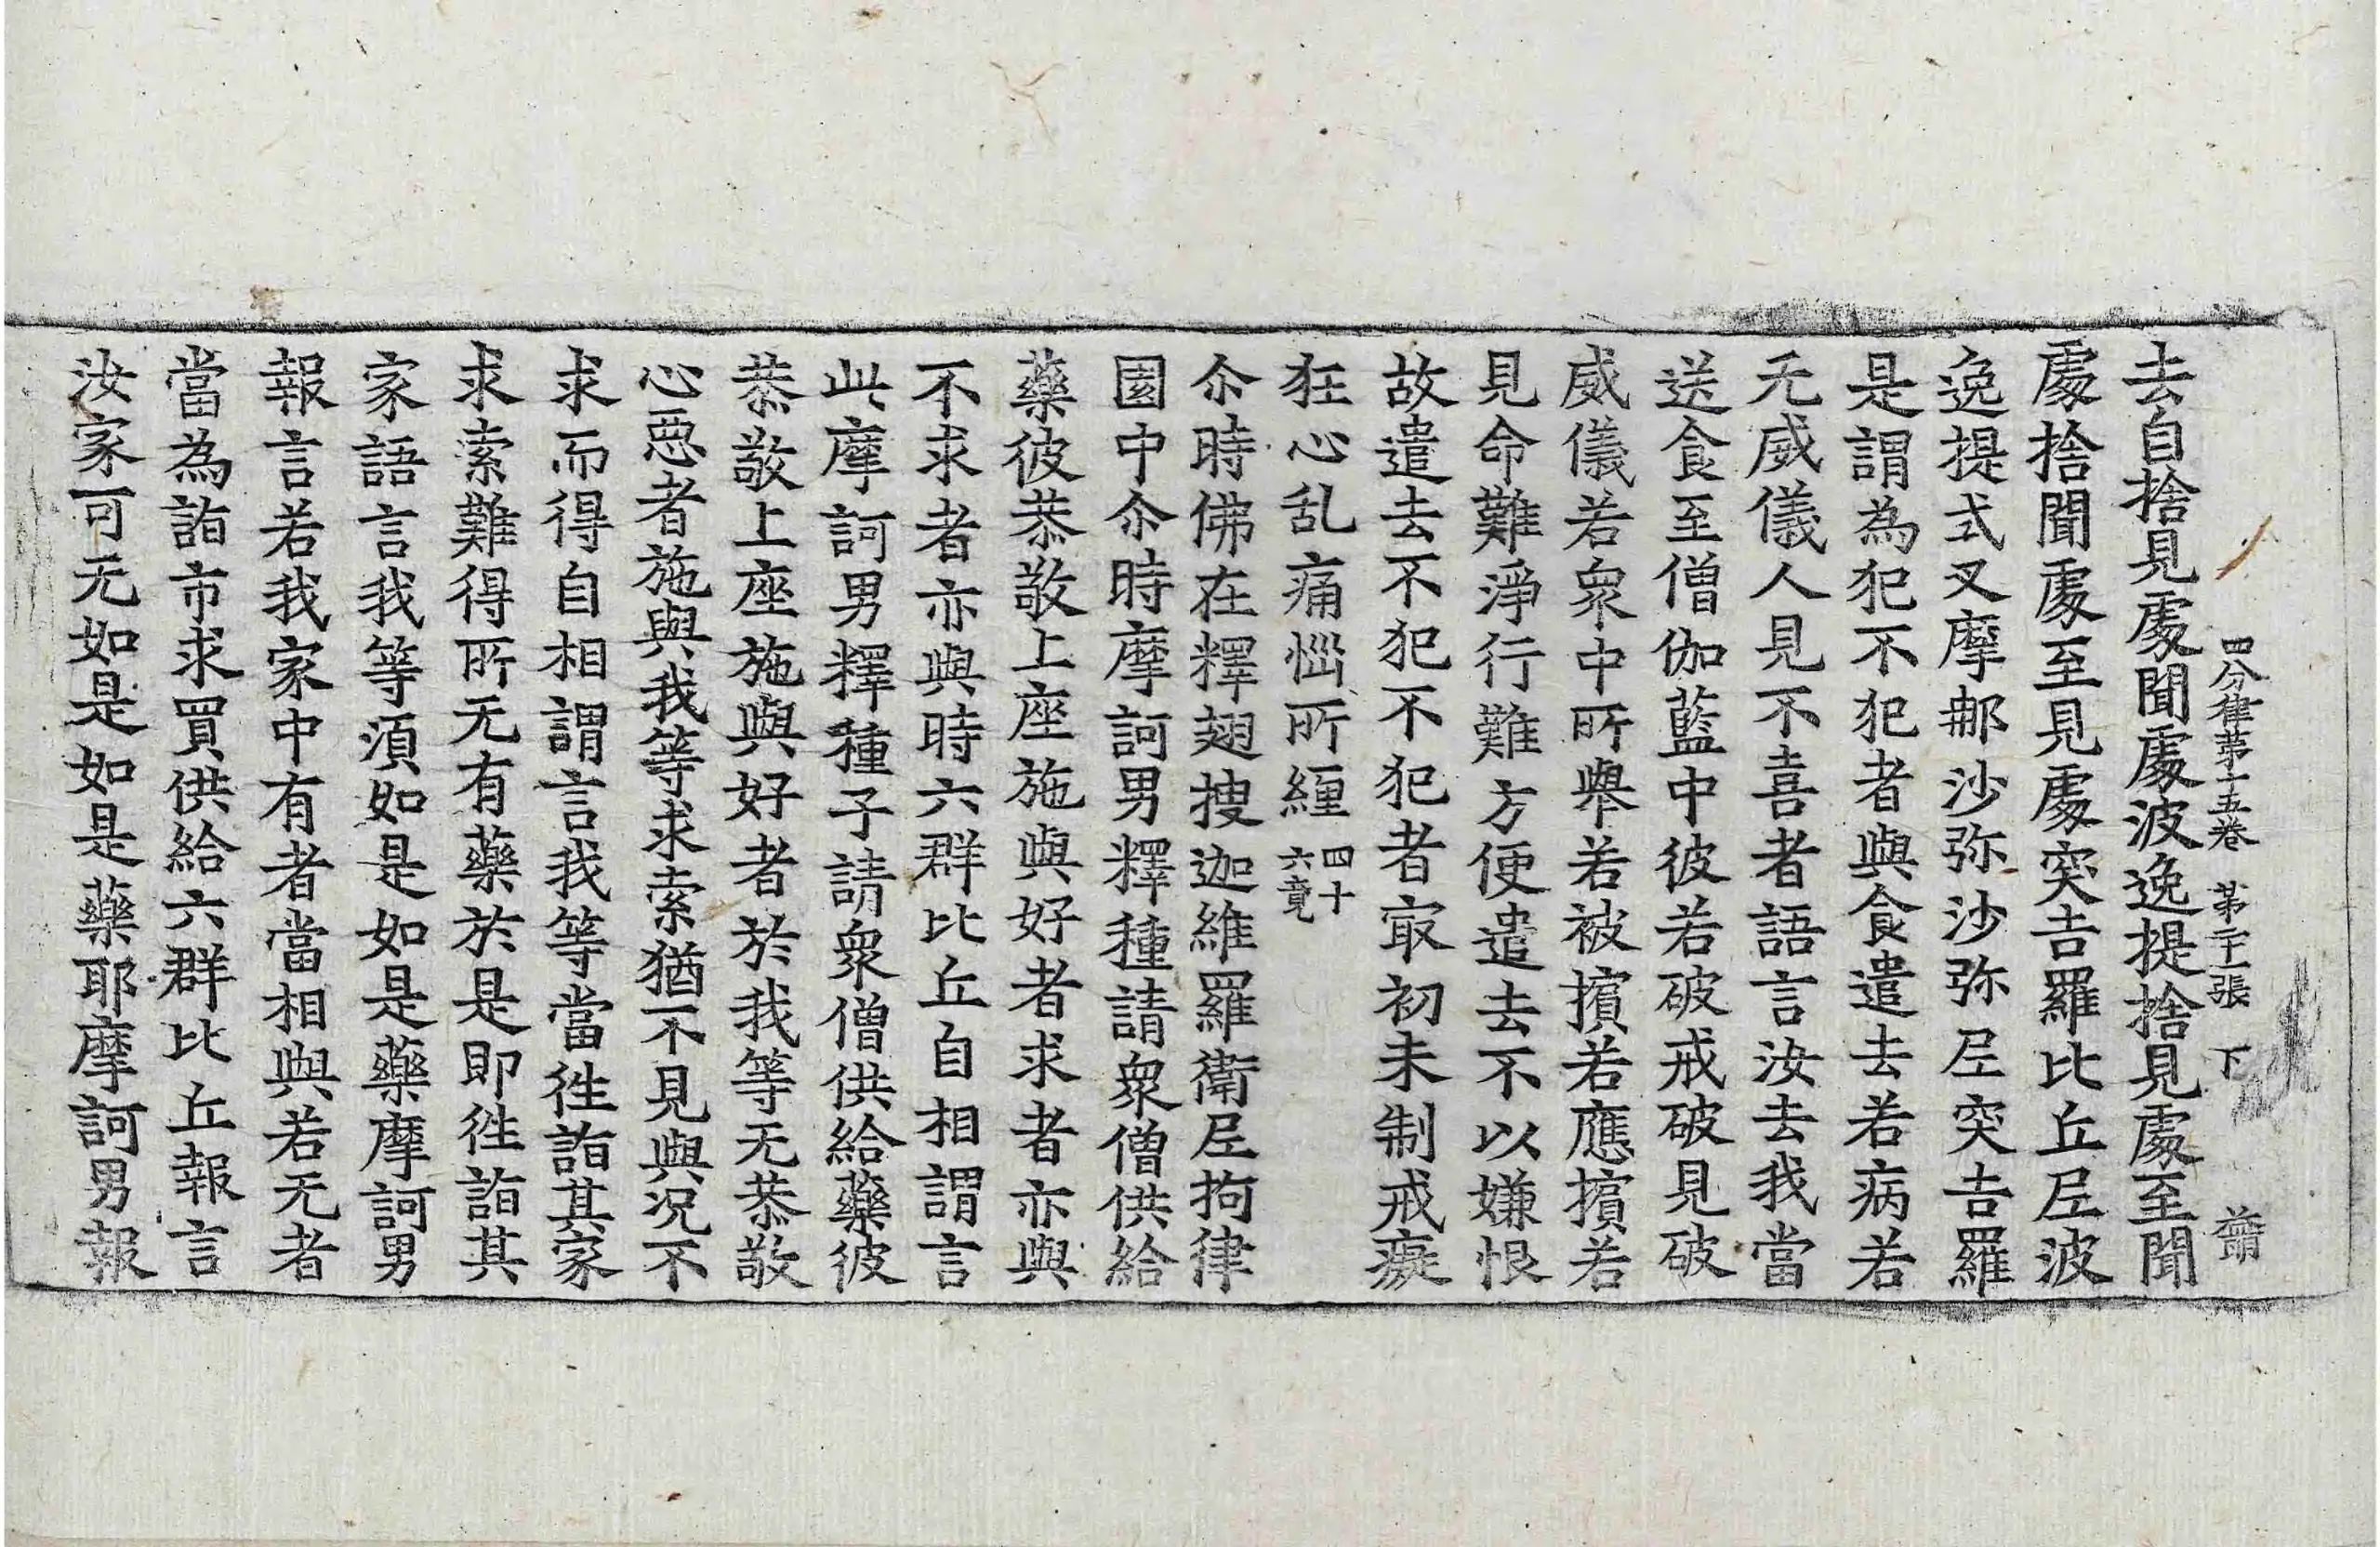 四分律第十五卷 第二十張 下
去自捨見處聞處波逸提捨見處至聞
處捨聞處至見處突吉羅比丘尼波
逸提式叉摩那沙弥沙弥尼突吉羅
是謂為犯不犯者與食遣去若病若
无威儀人見不喜者語言汝去我當
送食至僧伽藍中彼若破戒破見破
威儀若衆中所舉若被擯若應擯若
見命難淨行難方便遣去不以嫌恨
故遣去不犯不犯者㝡初未制戒癡
狂心乱痛惱所纏四十六竟
尒時佛在釋翅搜迦維羅衛尼拘律
園中尒時摩訶男釋種請衆僧供給
藥彼恭敬上座施與好者求者亦與
不求者亦與時六群比丘自相謂言
此摩訶男釋種子請衆僧供給藥彼
恭敬上座施與好者於我等无恭敬
心惡者施與我等求索猶不見與況不
求而得自相謂言我等當徃詣其家
求索難得所无有藥於是即徃詣其
家語言我等須如是如是藥摩訶男
報言若我家中有者當相與若无者
當為詣市求買供給六群比丘報言
汝家可无如是如是藥耶摩訶男報